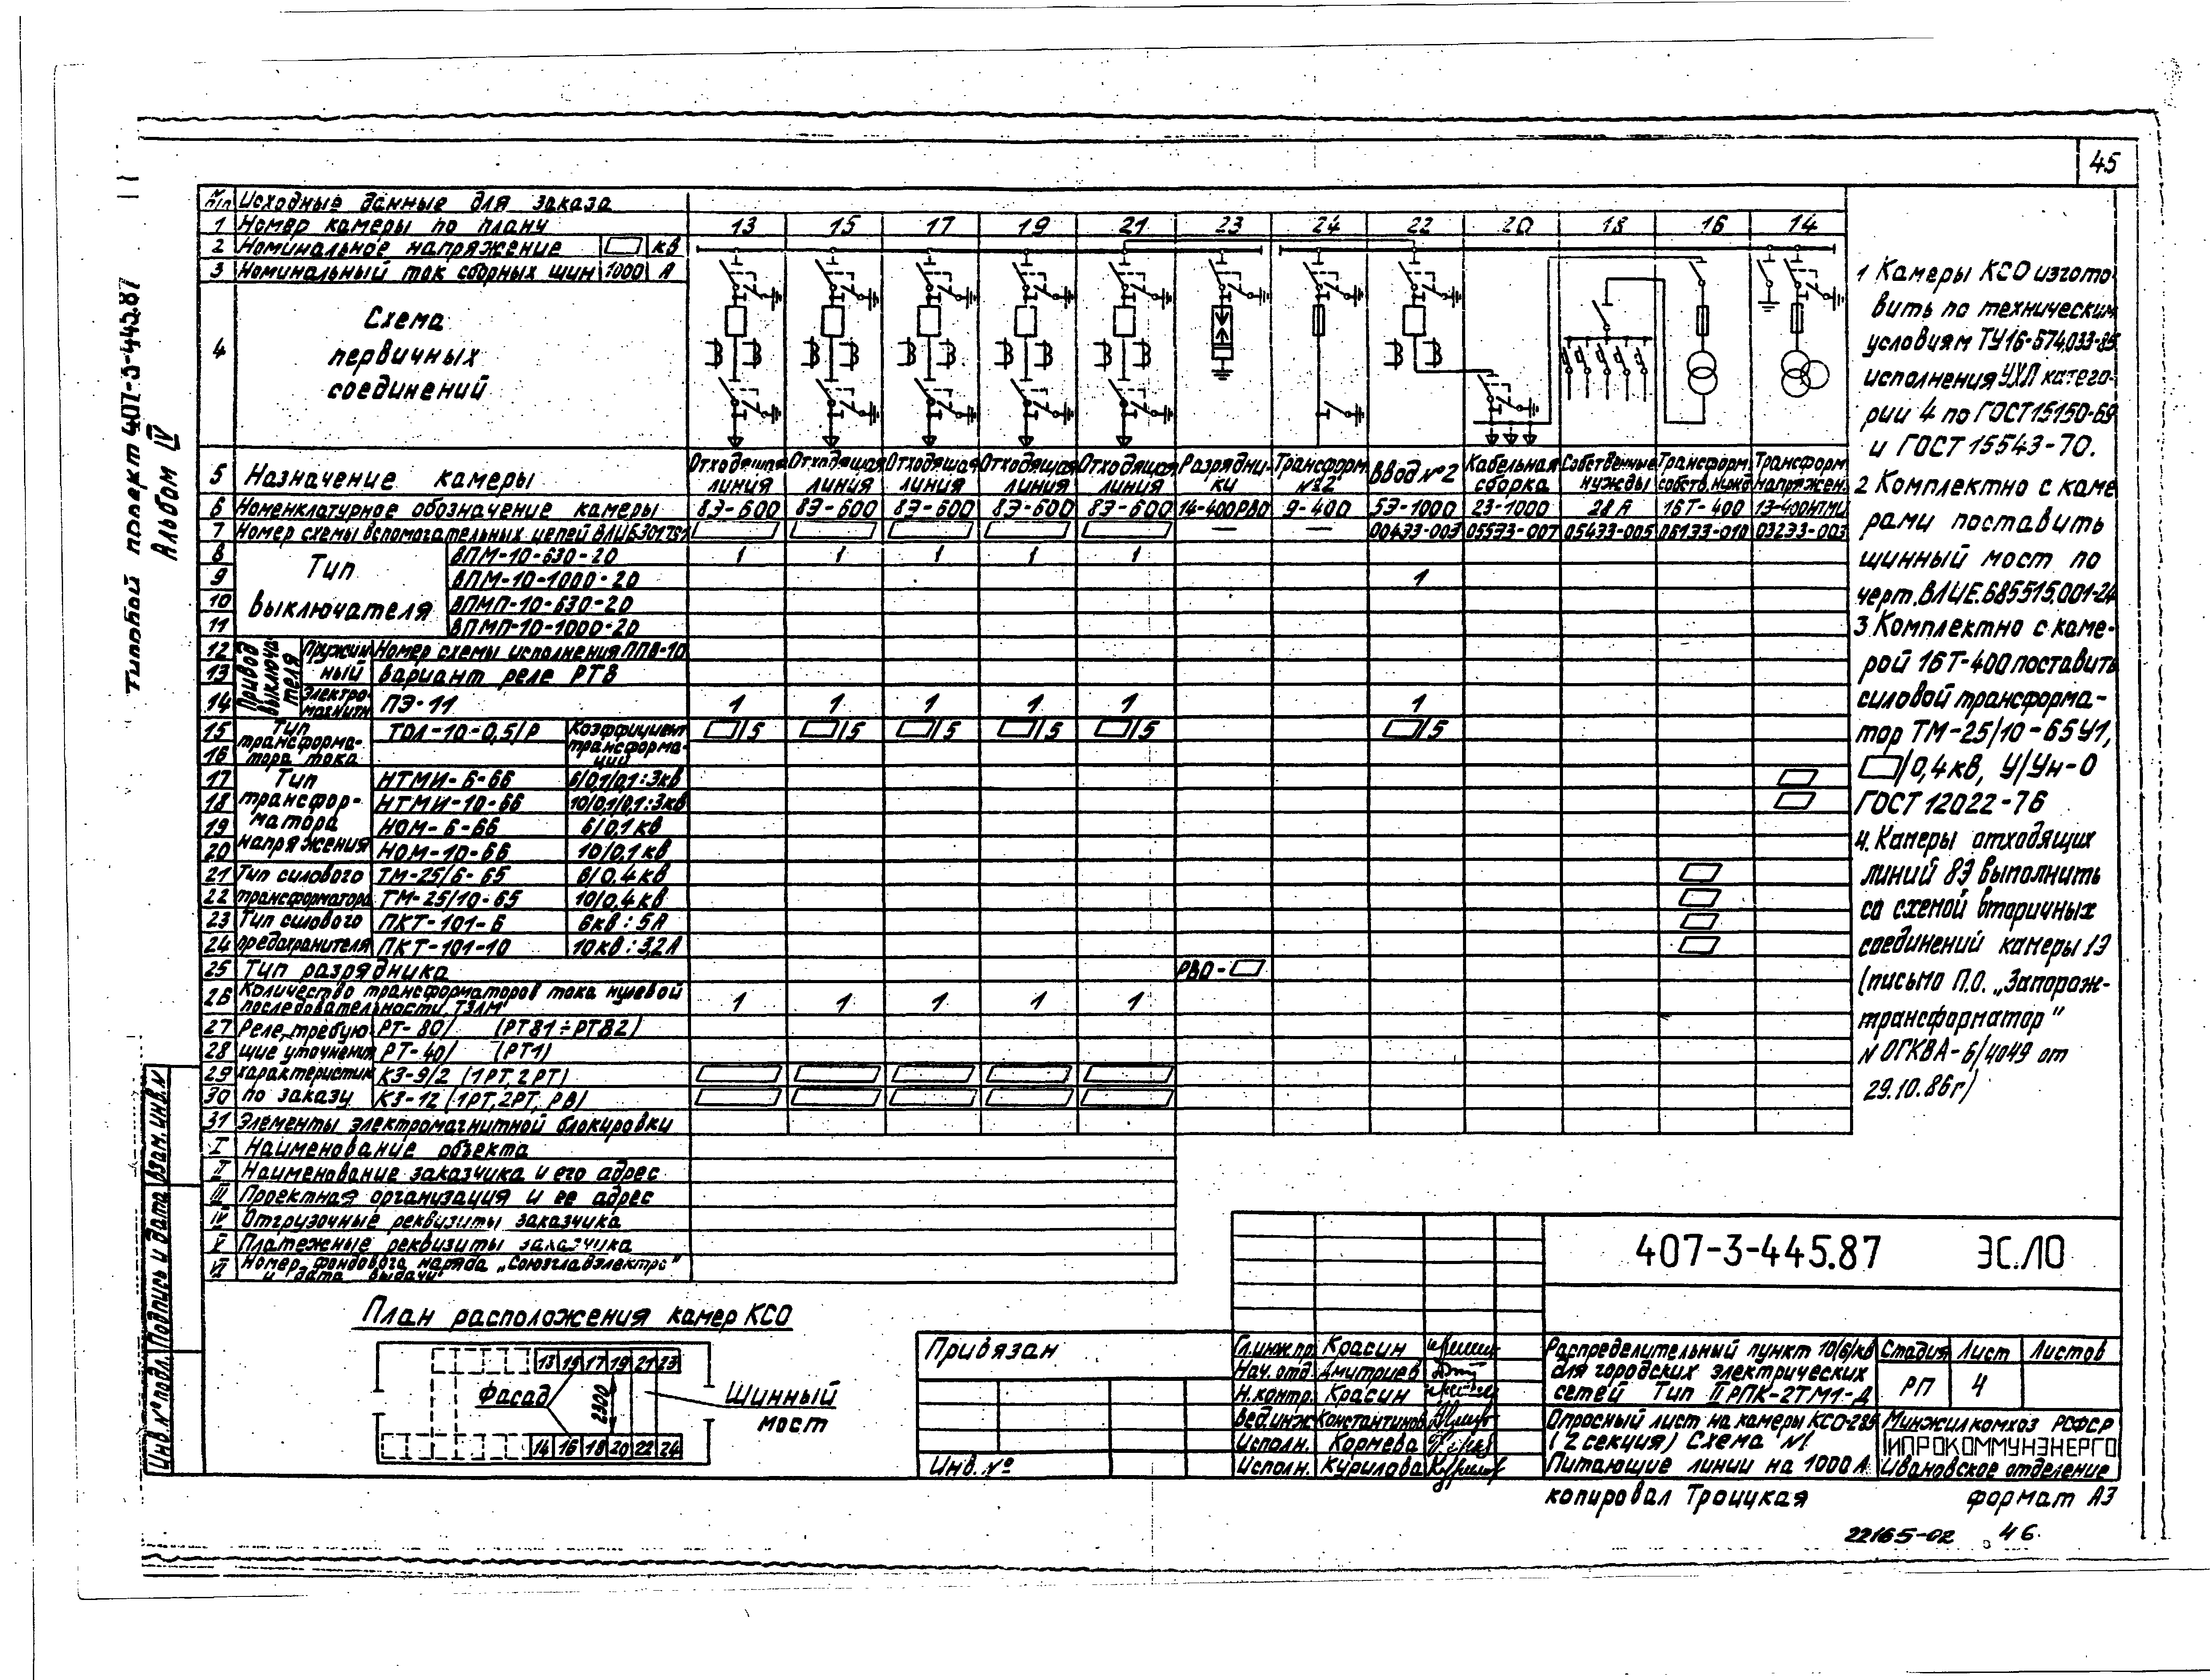 45
Типовой проект 407-3-445.87
Альбом IV
N п/п Исходные данные для заказа
1 Номер камеры по плану 13 15 17 19 21 23 24 22 20 18 16 14
2 Номинальное напряжение кв
3 Номинальный ток сборных шин 1000 А
4 Схема
первичных
соединений
5 Назначение камеры
Отходящая линия
Отходящая линия
Отходящая линия
Отходящая линия
Отходящая линия
Разрядники
Трансформ. №2
Ввод №2
Кабельная сборка
Собственные нужды
Трансформ. собств. нужд
Трансформ. напряжен.
6 Номенклатурное обозначение камеры 8Э-600 8Э-600 8Э-600 8Э-600 8Э-600 14-400РВО 9-400 5Э-1000 23-1000 28А 16Т-400 13-400НТМИ
7 Номер схемы вспомогательных цепей — — 00433-003 05533-007 05433-005 06133-010 03233-003
Тип
выключателя
8 ВПМ-10-630-20 1 1 1 1 1
9 ВПМ-10-1000-20 1
10 ВПМП-10-630-20
11 ВПМП-10-1000-20
Привод выключателя
12 Пружинный Номер схемы исполнения ППВ-10
13 вариант реле РТВ
14 Электромагнитн. ПЭ-11 1 1 1 1 1 1
15 Тип ТОЛ-10-0,5/Р Коэффициент /5 /5 /5 /5 /5 /5
трансформа- трансформа-
16 тора тока ции
17 Тип НТМИ-6-66 6/0,1/0,1:3кв
18 трансфор- НТМИ-10-66 10/0,1/0,1:3кв
19 матора НОМ-6-66 6/0,1кв
20 напряжения НОМ-10-66 10/0,1кв
21 Тип силового ТМ-25/6-65 6/0,4кв
22 трансформатора ТМ-25/10-65 10/0,4кв
23 Тип силового ПКТ-101-6 6кв:5А
24 предохранителя ПКТ-101-10 10кв:3,2А
25 Тип разрядника РВО-
26 Количество трансформаторов тока нулевой
последовательности ТЗЛМ 1 1 1 1 1
27 Реле, требую- РТ-80/ (РТ81÷РТ82)
28 щие уточнения РТ-40/ (РТ1)
29 характеристик КЗ-9/2 (1РТ, 2РТ)
30 по заказу КЗ-12 (1РТ, 2РТ, РВ)
31 Элементы электромагнитной блокировки
I Наименование объекта
II Наименование заказчика и его адрес
III Проектная организация и ее адрес
IV Отгрузочные реквизиты заказчика
V Платежные реквизиты заказчика
VI Номер фондового наряда „Союзглавэлектро"
и дата выдачи
1 Камеры КСО изгото-
вить по техническим
условиям ТУ16-674.033-85
исполнения УХЛ катего-
рии 4 по ГОСТ15150-69
и ГОСТ 15543-70.
2 Комплектно с каме
рами поставить
шинный мост по
черт. ВЛИЕ.685515.001-24
3 Комплектно с каме-
рой 16Т-400 поставить
силовой трансформа-
тор ТМ-25/10-65У1,
/0,4кв, У/Ун-0
ГОСТ 12022-76
4. Камеры отходящих
линий 8Э выполнить
со схемой вторичных
соединений камеры 1Э
(письмо П.О. „Запорож-
трансформатор"
N ОГКВА-6/4049 от
29.10.86г)
План расположения камер КСО
13 15 17 19 21 23
Фасад
2300
Шинный
мост
14 16 18 20 22 24
Инв. № подл. Подпись и дата Взам. инв. N
Привязан
Инв. №
407-3-445.87 ЭС.ЛО
Гл.инж.пр. Красин
Нач. отд. Дмитриев
Н.контр. Красин
Вед.инж Константинов
Исполн. Кормева
Исполн. Курилова
Распределительный пункт 10(6)кв
для городских электрических
сетей Тип IIРПК-2ТМ1-Д
Стадия Лист Листов
РП 4
Опросный лист на камеры КСО-285
(2 секция) Схема №1
Питающие линии на 1000А
Минжилкомхоз РСФСР
ГИПРОКОММУНЭНЕРГО
Ивановское отделение
копировал Троицкая формат А3
22165-02 46